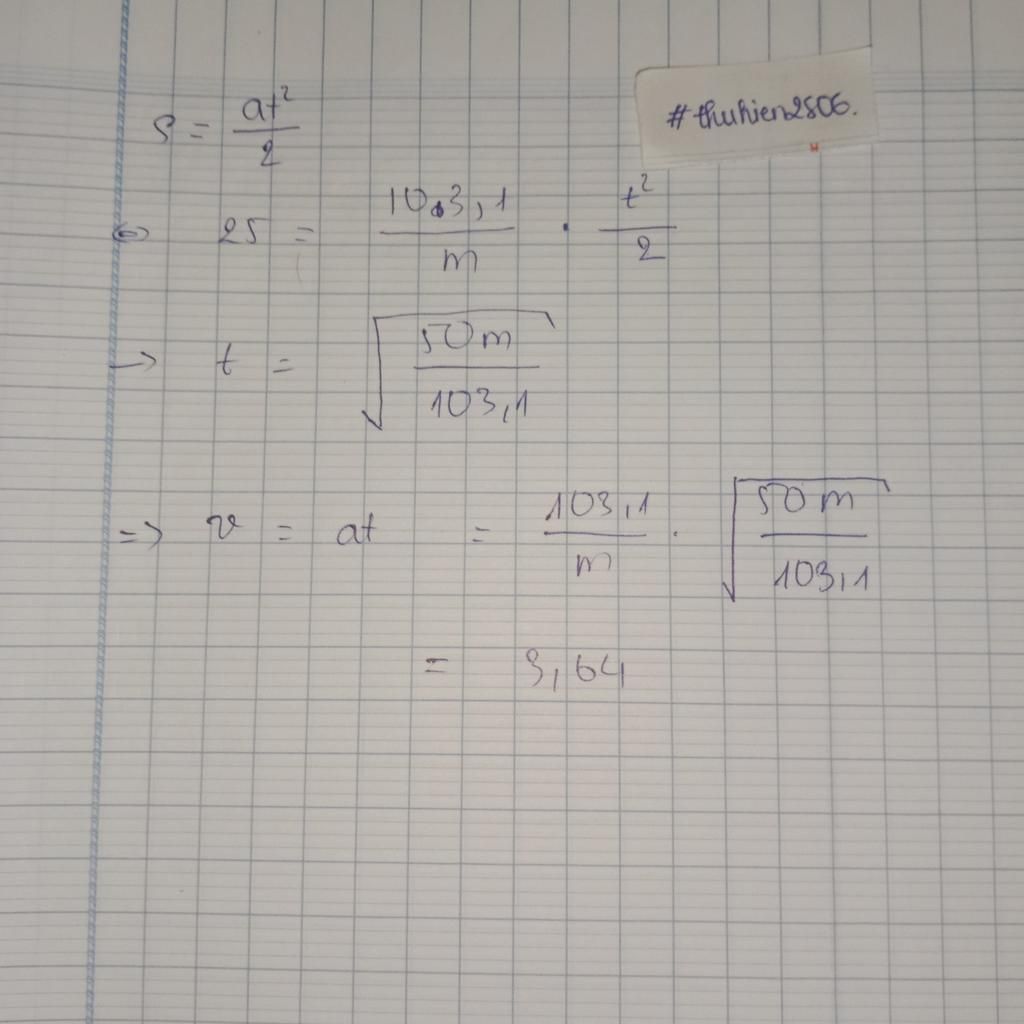 #thuhien2506.
s = at²/2
⇔ 25 = 103,1/m . t²/2
→ t = √(50m/103,1)
=> v = at = 103,1/m . √(50m/103,1)
= 3,64